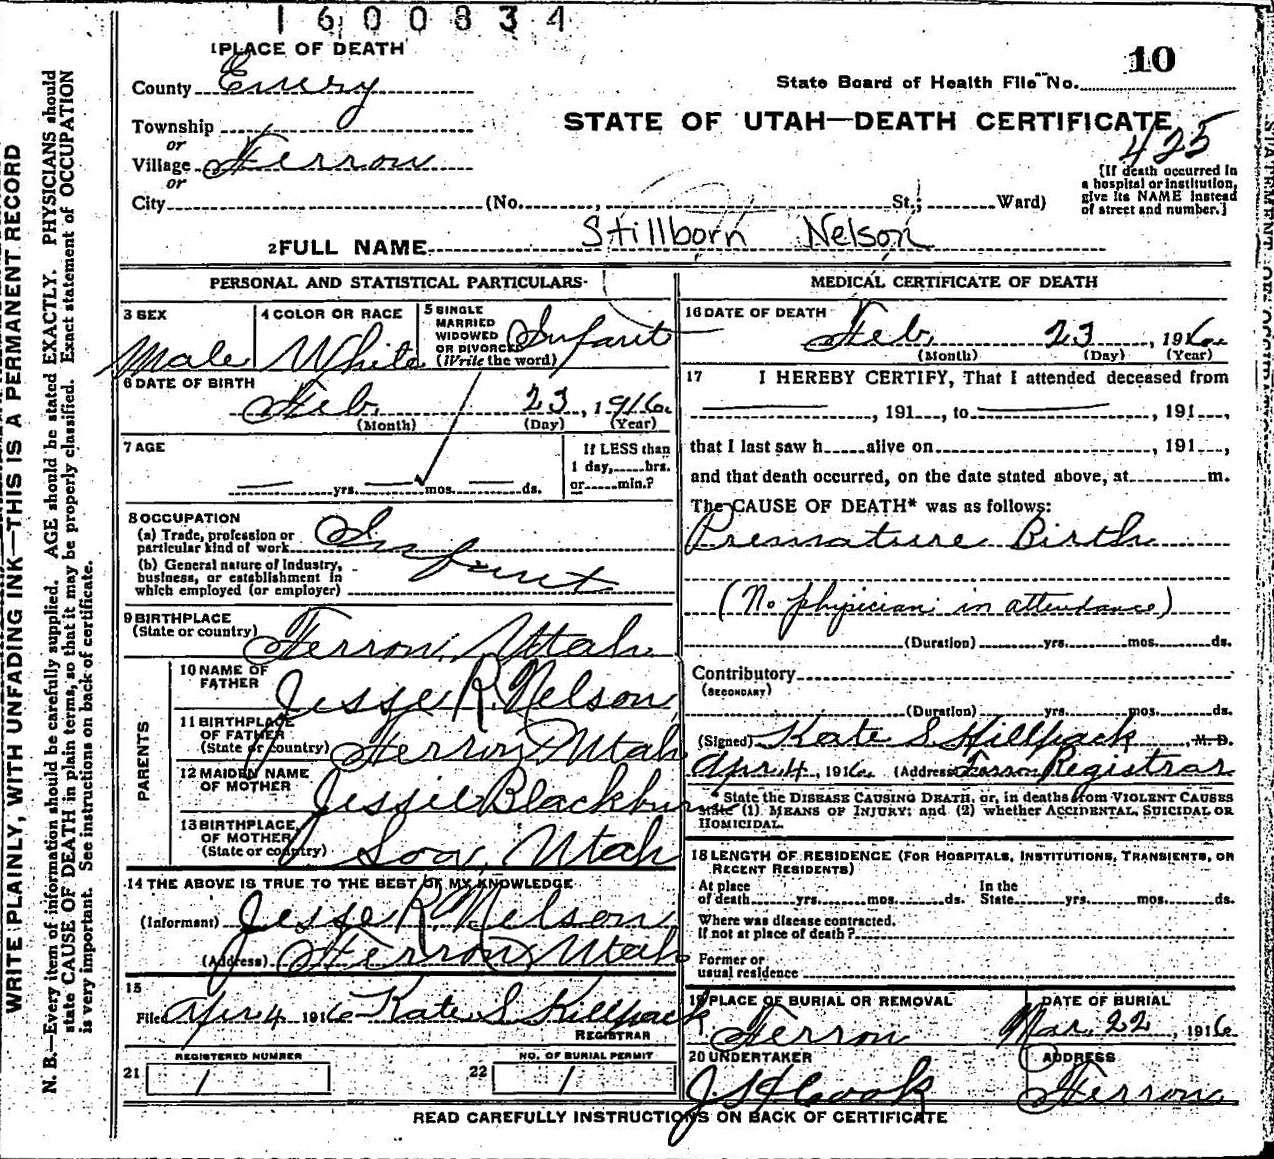 1600834
1 PLACE OF DEATH
10
County Emery
State Board of Health File No.
Township
STATE OF UTAH—DEATH CERTIFICATE
425
or
Village Ferron
or
City (No. , St.; Ward)
[If death occurred in
a hospital or institution,
give its NAME instead
of street and number.]
2 FULL NAME Stillborn Nelson
PERSONAL AND STATISTICAL PARTICULARS
3 SEX
Male
4 COLOR OR RACE
White
5 SINGLE
MARRIED
WIDOWED
OR DIVORCED
(Write the word)
Infant
6 DATE OF BIRTH
Feb 23, 1916
(Month) (Day) (Year)
7 AGE
yrs. mos. ds.
If LESS than
1 day, hrs.
or min.?
8 OCCUPATION
(a) Trade, profession or
particular kind of work Infant
(b) General nature of Industry,
business, or establishment in
which employed (or employer)
9 BIRTHPLACE
(State or country) Ferron, Utah
PARENTS
10 NAME OF
FATHER Jesse R. Nelson
11 BIRTHPLACE
OF FATHER
(State or country) Ferron Utah
12 MAIDEN NAME
OF MOTHER Jessie Blackburn
13 BIRTHPLACE
OF MOTHER
(State or country) Loa, Utah
14 THE ABOVE IS TRUE TO THE BEST OF MY KNOWLEDGE
(Informant) Jesse R. Nelson
(Address) Ferron Utah
15
File Apr 4 1916 Kate S Killpack
REGISTRAR
REGISTERED NUMBER
21 1
NO. OF BURIAL PERMIT
22 1
MEDICAL CERTIFICATE OF DEATH
16 DATE OF DEATH
Feb. 23, 1916
(Month) (Day) (Year)
17 I HEREBY CERTIFY, That I attended deceased from
, 191 , to , 191 ,
that I last saw h alive on , 191 ,
and that death occurred, on the date stated above, at m.
The CAUSE OF DEATH* was as follows:
Premature Birth
(No physician in attendance)
(Duration) yrs. mos. ds.
Contributory
(SECONDARY)
(Duration) yrs. mos. ds.
(Signed) Kate S Killpack , M. D.
Apr 4, 1916 (Address) Ferron Registrar
*State the DISEASE CAUSING DEATH, or, in deaths from VIOLENT CAUSES
state (1) MEANS OF INJURY; and (2) whether ACCIDENTAL, SUICIDAL OR
HOMICIDAL.
18 LENGTH OF RESIDENCE (FOR HOSPITALS, INSTITUTIONS, TRANSIENTS, OR
RECENT RESIDENTS)
At place
of death yrs. mos. ds.
In the
State yrs. mos. ds.
Where was disease contracted.
If not at place of death?
Former or
usual residence
19 PLACE OF BURIAL OR REMOVAL
Ferron
DATE OF BURIAL
Mar. 22, 1916
20 UNDERTAKER
ADDRESS
Cook
Ferron
READ CAREFULLY INSTRUCTIONS ON BACK OF CERTIFICATE
WRITE PLAINLY, WITH UNFADING INK—THIS IS A PERMANENT RECORD
N. B.—Every item of information should be carefully supplied. AGE should be stated EXACTLY. PHYSICIANS should
state CAUSE OF DEATH in plain terms, so that it may be properly classified. Exact statement of OCCUPATION
is very important. See instructions on back of certificate.